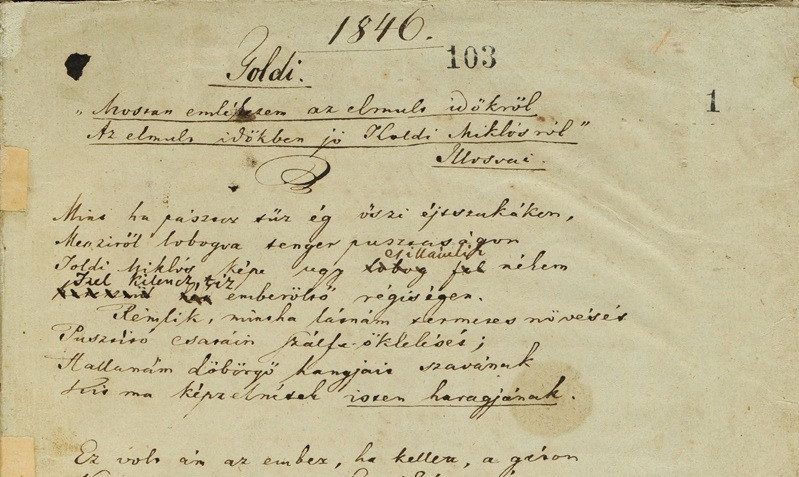 1846.
103
Toldi.
1
„Mostan emlékezem az elmult időkről
Az elmult időkben jó Tholdi Miklósról”
Illosvai.
Mint ha pásztor tűz ég őszi éjtszakákon,
Messziről lobogva tenger pusztaságon
csillámlik
Toldi Miklós képe ugy lobog fel nékem
Izel kilencz, tiz
emberöltő régiségen.
Rémlik, mintha látnám termetes növését
Pusztitó csatáin szálfa-öklelését;
Hallanám döbörgő hangjait szavának
Kit ma képzelnétek isten haragjának.
Ez volt ám az ember, ha kellett, a gáton